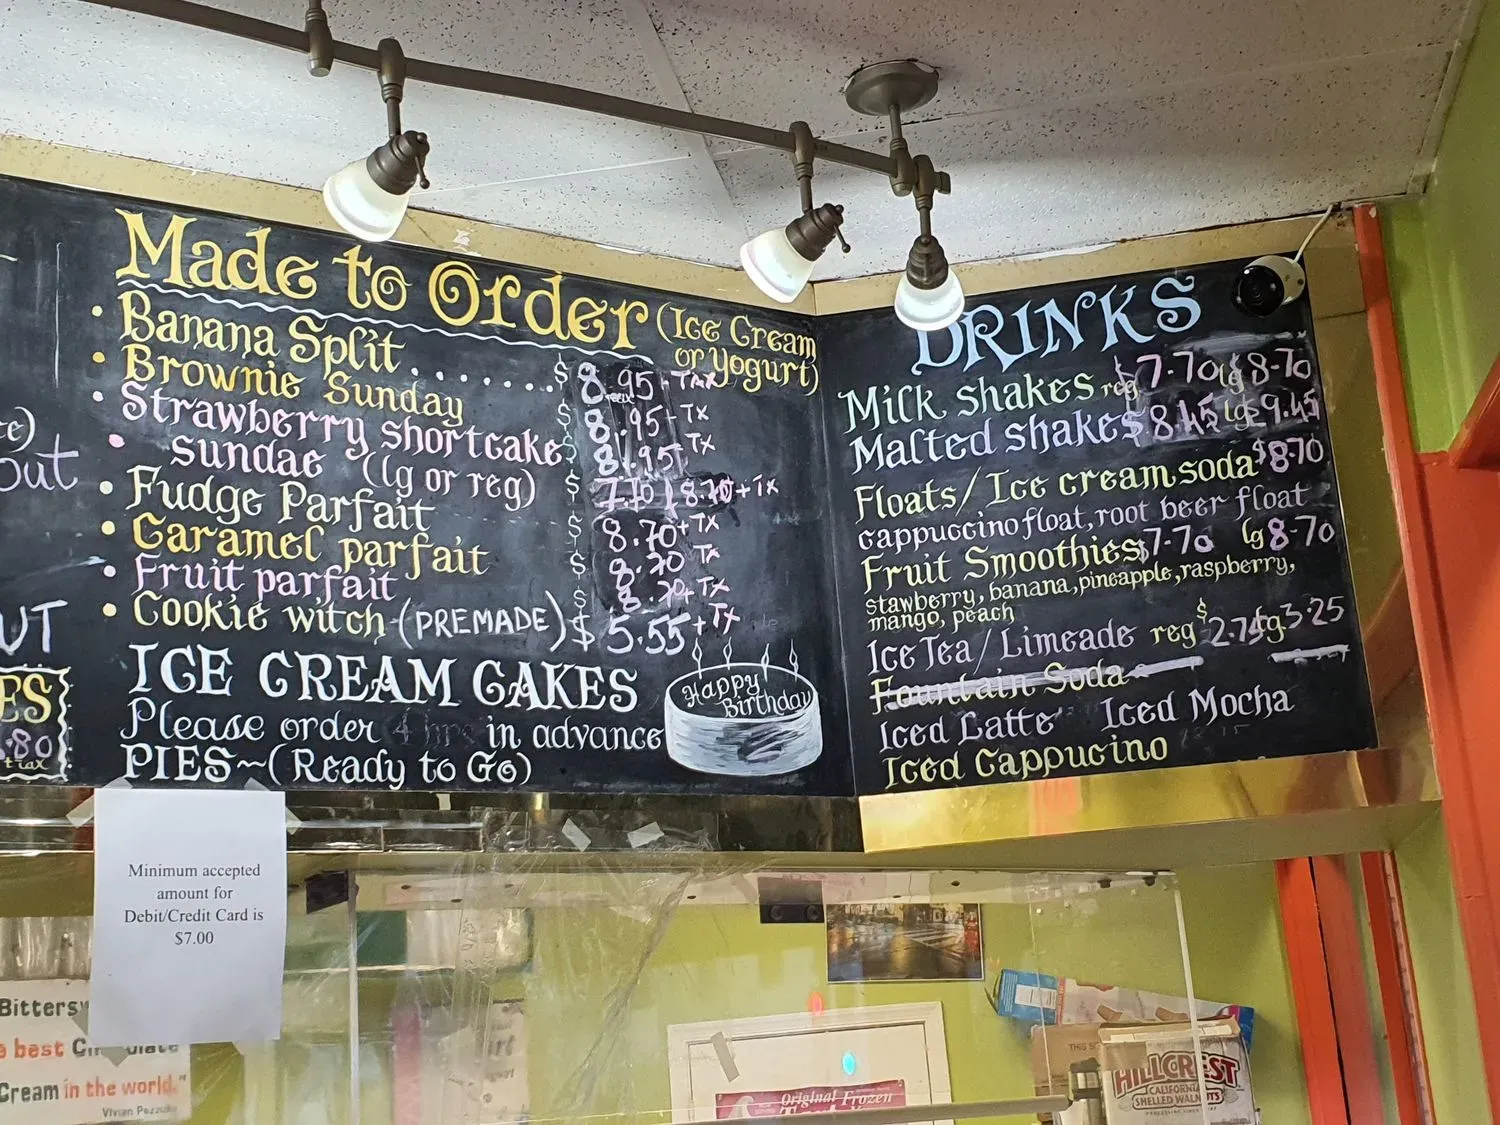 Made to Order (Ice Cream
or Yogurt)
• Banana Split . . . . . . . $ 8.95 - TAX
• Brownie Sunday $ 8.95 - TX
• Strawberry shortcake $ 8.95 TX
• Sundae (lg or reg) $ 7.70 | 8.70 + TX
• Fudge Parfait $ 8.70 + TX
• Caramel parfait $ 8.70 TX
• Fruit parfait $ 8.70 + TX
• Cookie witch - (PREMADE) $ 5.55 + TX
ICE CREAM CAKES
Please order 4 hrs in advance
PIES ~ (Ready to Go)
Happy
Birthday
DRINKS
Milk Shakes reg $7.70 lg $8.70
Malted Shakes $8.45 lg $9.45
Floats/Ice cream soda $8.70
cappuccino float, root beer float
Fruit Smoothies $7.70 lg 8.70
stawberry, banana, pineapple, raspberry,
mango, peach
Ice Tea/Limeade reg $2.75 lg 3.25
Fountain Soda
Iced Latte Iced Mocha
Iced Cappucino
out
UT
ES
.80
tax
Minimum accepted
amount for
Debit/Credit Card is
$7.00
Bittersw
best Chocolate
Cream in the world."
Vivian
Original Frozen
HILLCREST
CALIFORNIA
SHELLED WALNUTS